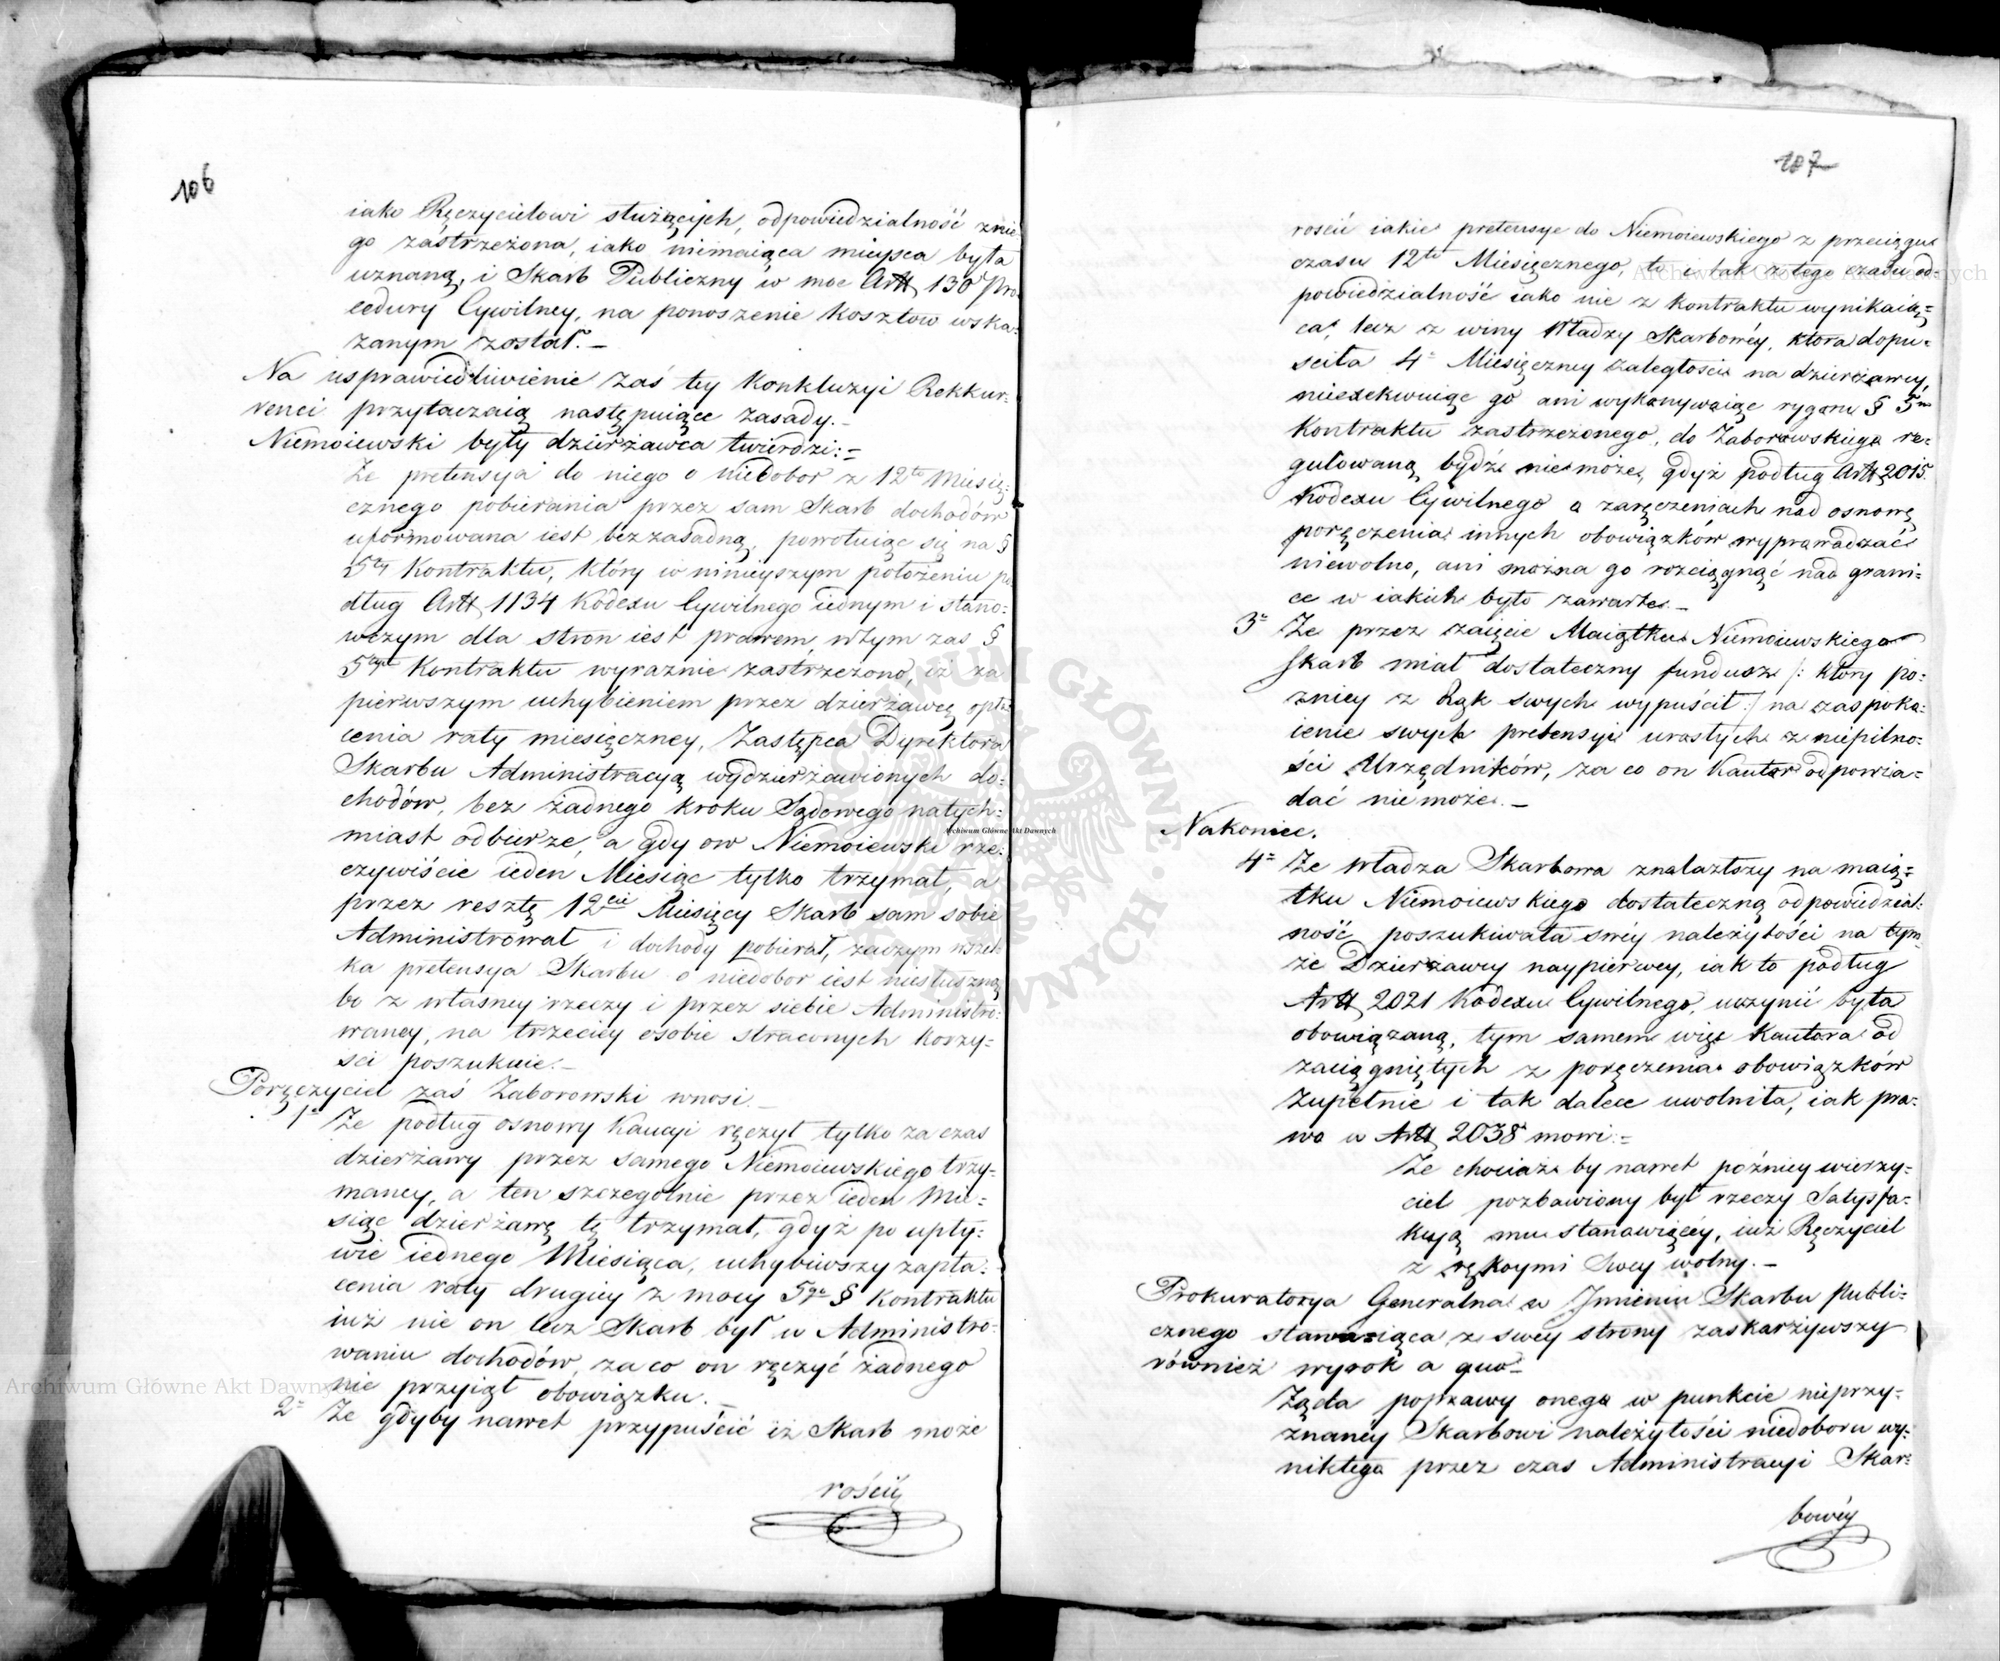 106
iako Ręczycielowi służących, odpowiedzialność znie
go zastrzeżona, iako niemaiąca mieysca była
uznaną, i Skarb Publiczny w moc Artt, 130 Pro
cedury Cywilney, na ponoszenie kosztow wska-
zanym został. –
Na usprawiedliwienie zaś tey Konkluzyi Rekkur-
renci przytaczaią następuiące zasady. –
Niemoiewski były dzierżawca twierdzi: =
Że pretensya do niego o niedobor z 12to Miesię-
cznego pobierania przez sam Skarb dochodów
uformowana iest bezzasadną, powołuiąc się na §
5ty Kontraktu, który w ninieyszym położeniu po
dług Artt, 1134 Kodexu Cywilnego iednym i stano-
wczym dla stron iest prawem, w tym zas §
5tym Kontraktu wyraznie zastrzeżono, iż za
pierwszym uchybieniem przez dzierżawcę opła
cenia raty miesięczney, Zastępca Dyrektora
Skarbu Administracyą wydzierżawionych do-
chodów, bez żadnego kroku Sądowego natych-
miast odbierze, a gdy ow Niemoiewski rze-
czywiście ieden Miesiąc tylko trzymał, a
przez resztę 12cie Miesięcy Skarb sam sobie
Administrował i dochody pobierał, zaczym wszel-
ka pretensya Skarbu o niedobor iest niesłuszną
bo z własney rzeczy i przez siebie Administro-
waney, na trzeciey osobie straconych korzy-
sci poszukuie. –
Poręczyciel zaś Zaborowski wnosi. –
1e Że podług osnowy Kaucyi ręczył tylko za czas
dzierżawy przez samego Niemoiewskiego trzy-
maney, a ten szczegolnie przez ieden Mie-
siąc dzierżawę tę trzymał, gdyż po upły-
wie iednego Miesiąca, uchybiwszy zapła-
cenia raty drugiey z mocy 5go § Kontraktu
iuż nie on lecz Skarb był w Administro-
waniu dochodów, za co on ręczyć żadnego
nie przyiął obowiązku. –
2= Że gdyby nawet przypuścić iż Skarb może
rościć
107
rościć iakie pretensye do Niemoiewskiego z przeciągu
czasu 12to Miesięcznego, to i tak z tego czasu od-
powiedzialność iako nie z kontraktu wynikaią-
ca, lecz z winy Władzy Skarbowéy, ktora dopu-
sciła 4= Miesięczney zaległości na dzierżawcy,
nieexekwuiąc go ani wykonywaiąc rygoru § 5m
Kontraktu zastrzeżonego, do Zaborowskiego re-
gulowaną bydź nie może, gdyż podług Artt, 2015.
Kodexu Cywilnego o zaręczeniach nad osnowę
poręczenia innych obowiązków wyprowadzać
niewolno, ani można go rozciągnąć nad grani-
ce w iakich było zawarte. –
3= Że przez zaięcie Maiątku Niemoiewskiego
Skarb miał dostateczny fundusz /: ktory po-
zniey z Rąk swych wypuścił :/ na zaspoko-
ienie swych pretensyi urosłych z niepilno-
ści Urzędników, za co on Kautor odpowia-
dać nie może. –
Nakoniec.
4= Że władza Skarbowa znalazłszy na maią-
tku Niemoiewskiego dostateczną odpowiedzial-
ność poszukiwała swéy należytości na tym-
że Dzierżawcy naypierwey, iak to podług
Artt 2021 Kodexu Cywilnego, uczynić była
obowiązaną, tym samem więc Kautora od
zaciągniętych z poręczenia obowiązków
zupełnie i tak dalece uwolniła, iak pra-
wo w Artt, 2038 mowi: =
Że chociaż by nawet późniey wierzy-
ciel pozbawiony był rzeczy Satysfa-
kcyą mu stanowiącéy, iuż Ręczyciel
z rękoymi swey wolny. –
Prokuratorya Generalna w Jmieniu Skarbu Publi-
cznego stawaiąca z swéy strony zaskarżywszy
również wyrok a quo –
Żąda poprawy onego w punkcie nieprzy-
znanéy Skarbowi należytości niedoboru wy-
nikłego przez czas Administracyi Skar-
bowéy
Archiwum Główne Akt Dawnych
Archiwum Główne Akt Dawnych
Archiwum Główne Akt Dawnych